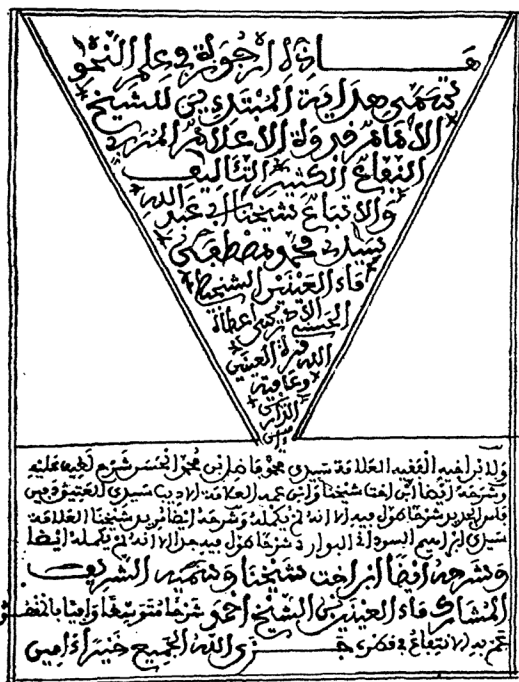 هاذه ارجوزة في علم النحو
تسمى هداية المبتدئين للشيخ
الامام قدوة الاعلام المربي
النفاع الكثير التآليف
والاتباع شيخنا ابي عبد الله
سيدي محمد مصطفى
ماء العينين الشنجيطي
الحسني الادريسي اعطاه
الله قرة العين
وعافية
الدارين
ءامين
ولابن اخيه الفقيه العلامة سيدي محمد فاضل بن محمد الحسن شرح لطيف عليه
وشرحه ايضا ابن اخت شيخنا وابن عمه العلامة الاديب سيدي العتيق دفين
فاس الجديد شرحا طول فيه الا انه لم يكمله وشرحه ايضا مريد شيخنا العلامة
سيدي ابراهيم السوداني البواري شرحا طول فيه جدا الا انه لم يكمله ايضا
وشرحه ايضا ابن اخت شيخنا وسميه الشريف
المشارك ماء العينين بن الشيخ احمد شرحا متوسطا وافيا بالمقصود
عم به الانتفاع في قطره جزى الله الجميع خيرا ءامين